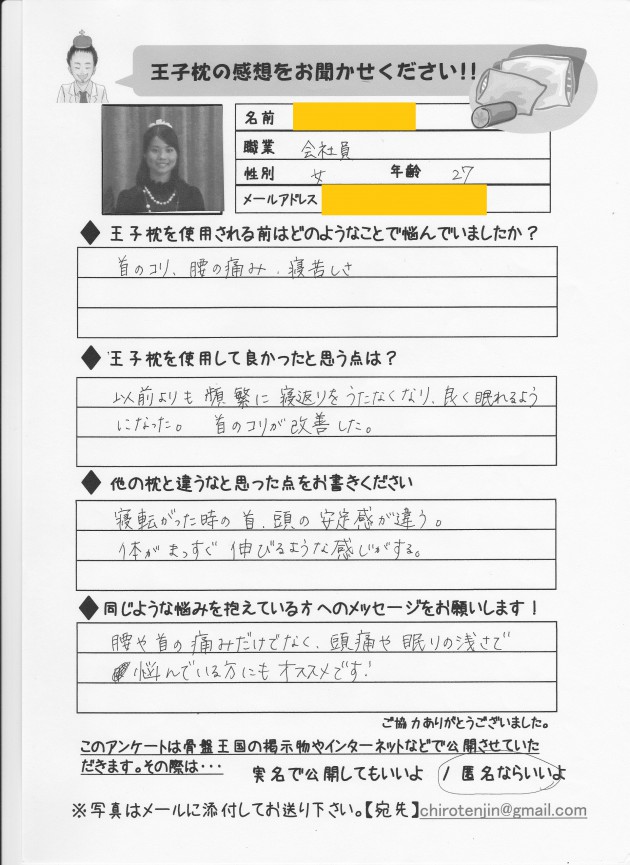 王子枕の感想をお聞かせください!!
名前
職業 会社員
性別 女 年齢 27
メールアドレス
◆王子枕を使用される前はどのようなことで悩んでいましたか？
首のコリ、腰の痛み、寝苦しさ
◆王子枕を使用して良かったと思う点は？
以前よりも頻繁に寝返りをうたなくなり、良く眠れるよう
になった。 首のコリが改善した。
◆他の枕と違うなと思った点をお書きください
寝転がった時の首、頭の安定感が違う。
体がまっすぐ伸びるような感じがする。
◆同じような悩みを抱えている方へのメッセージをお願いします！
腰や首の痛みだけでなく、頭痛や眠りの浅さで
悩んでいる方にもオススメです！
ご協力ありがとうございました。
このアンケートは骨盤王国の掲示物やインターネットなどで公開させていた
だきます。その際は・・・ 実名で公開してもいいよ / 匿名ならいいよ
※写真はメールに添付してお送り下さい。【宛先】chirotenjin@gmail.com